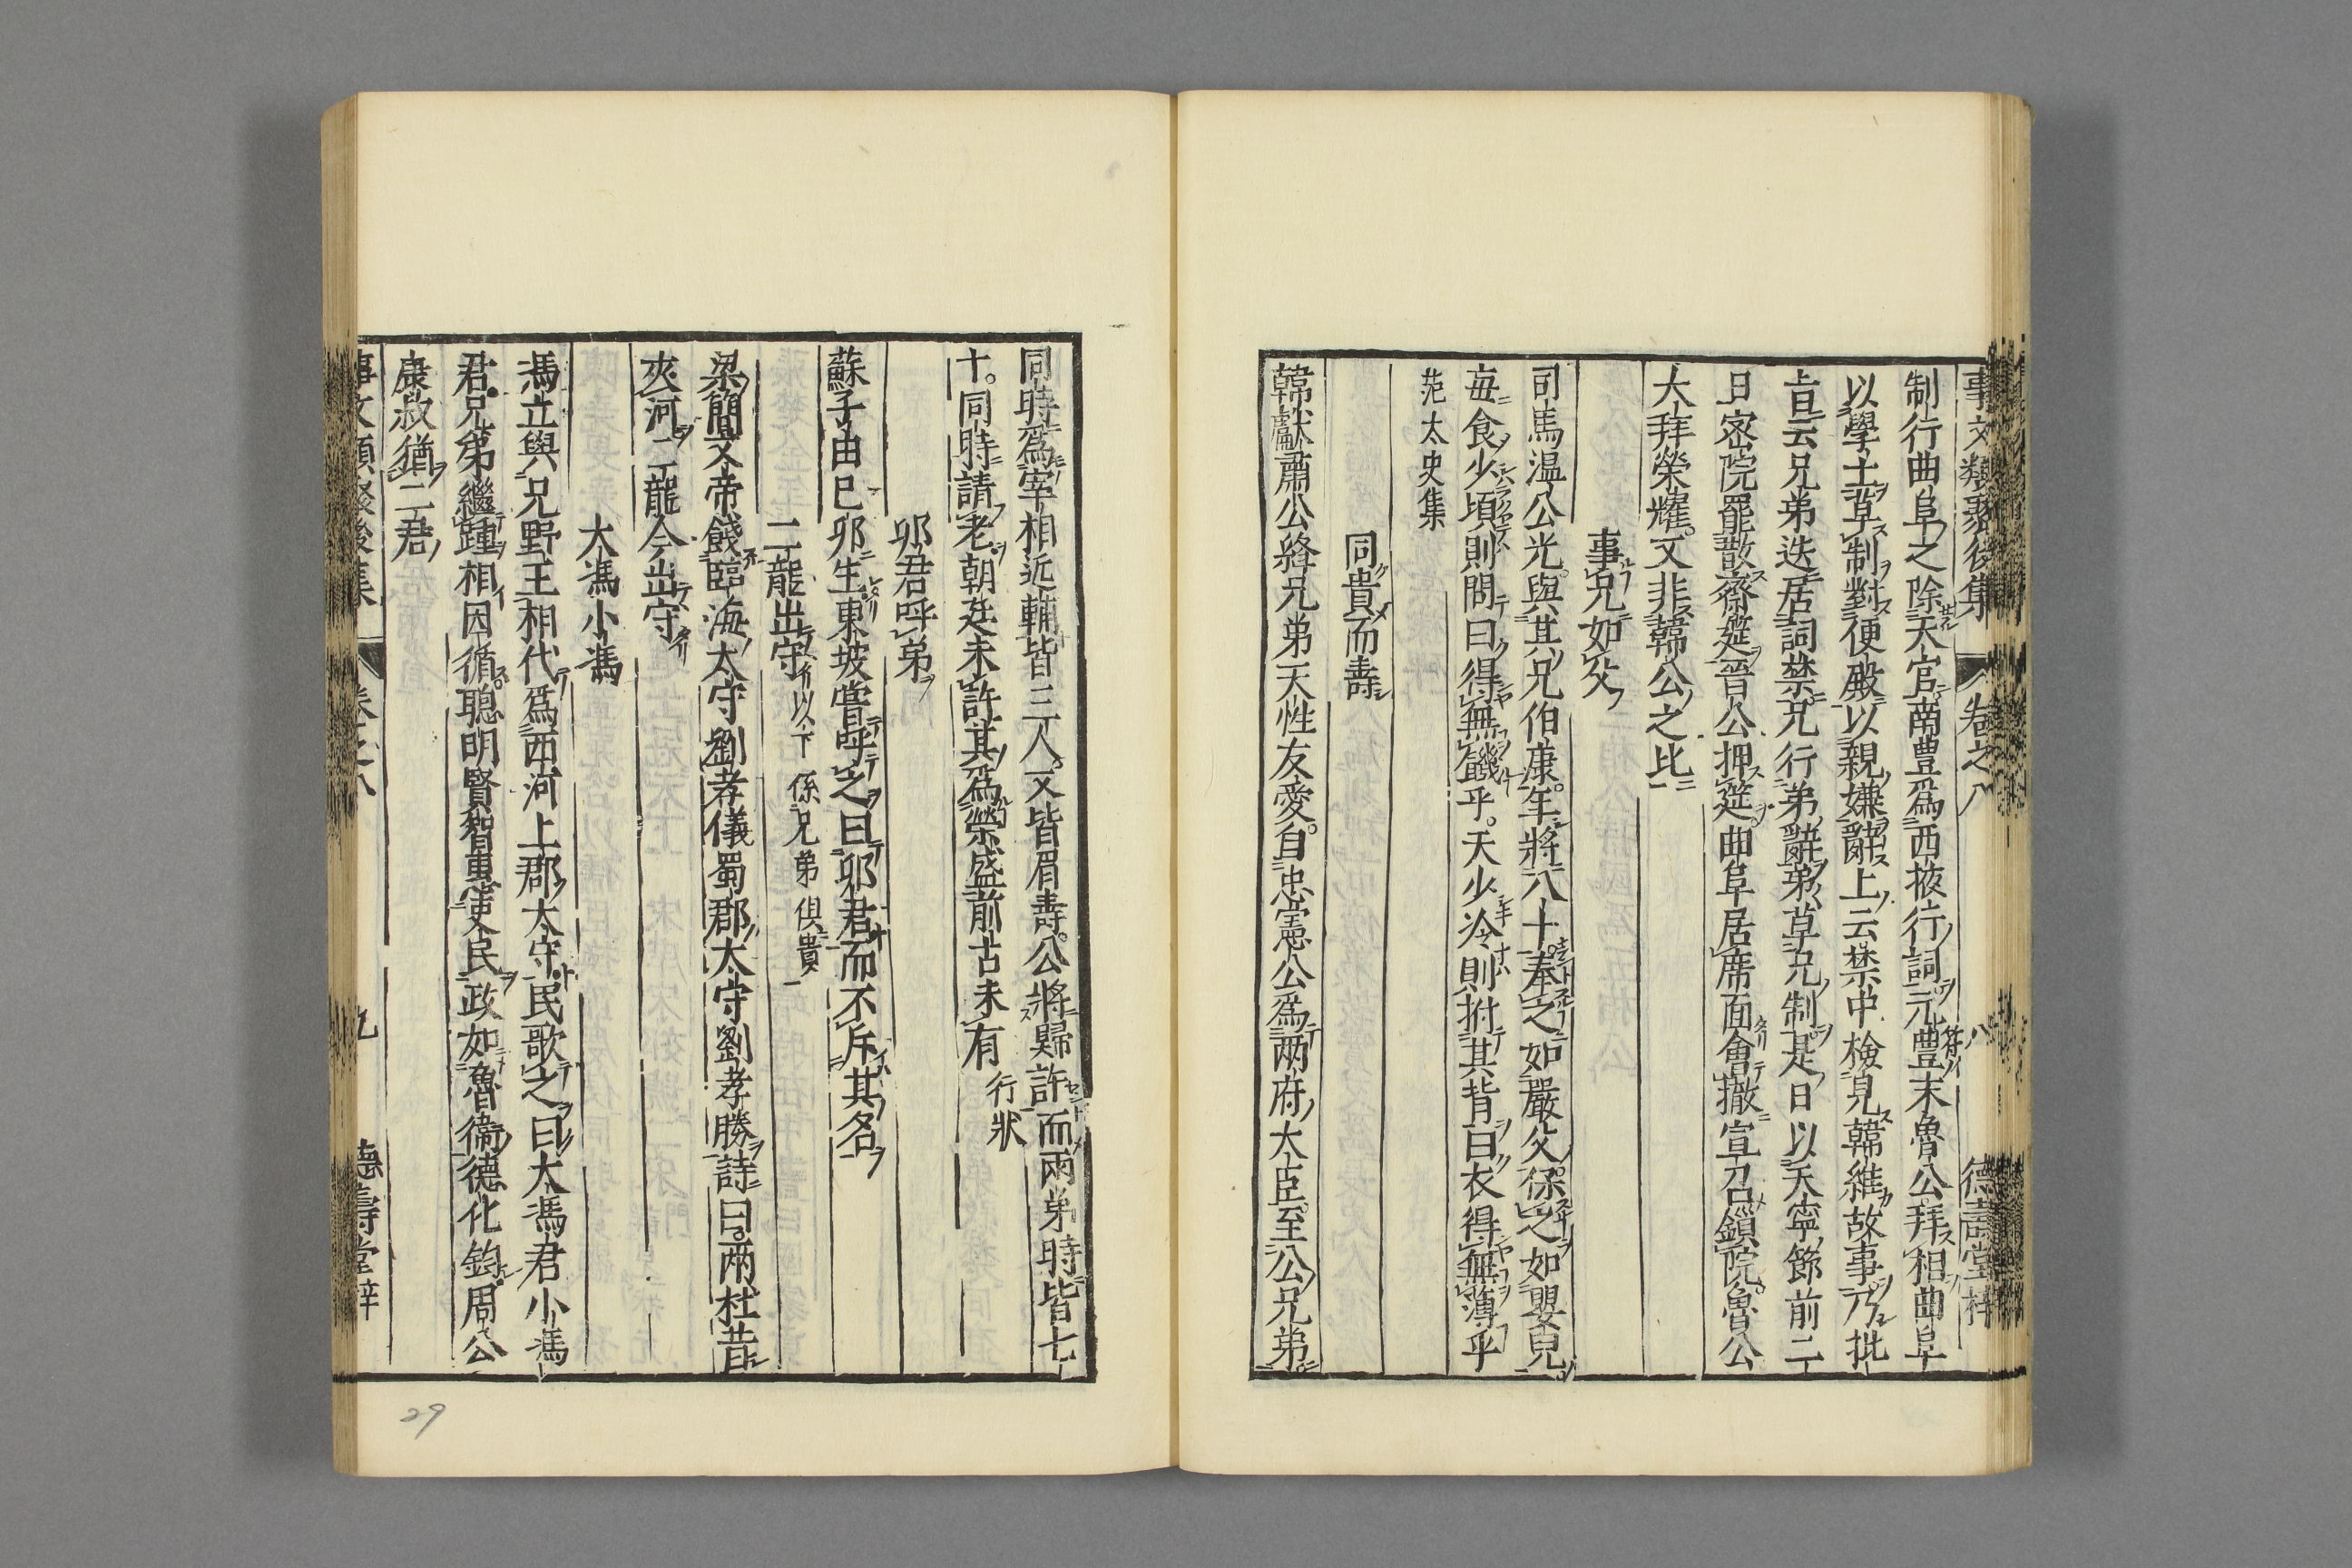 事文類聚後集 卷之八 八 德壽堂梓
制行曲阜之除天官南豊爲西掖行詞元豊末魯公拜相曲阜
以學士草制對便殿以親嫌辭上云禁中檢見韓維故事乃批
旨云兄弟迭居詞禁兄行弟辭弟草兄制是日以天寧節前二
日宻院罷散齋筵晉公押筵曲阜居席面會撤宣召鎖院魯公
大拜榮耀又非韓公之比
事兄如父
司馬温公光與其兄伯康年將八十奉之如嚴父保之如嬰兒
每食少頃則問曰得無饑乎天少冷則拊其背曰衣得無薄乎
范太史集
同貴而壽
韓獻肅公絳兄弟天性友愛自忠憲公爲兩府大臣至公兄弟
同時爲宰相近輔皆三人又皆眉壽公將歸許而兩弟時皆七
十同時請老朝廷未許其爲榮盛前古未有 行狀
夘君呼弟
蘇子由已夘生東坡嘗呼之曰夘君而不斥其名
二龍出守 以下係兄弟俱貴
梁簡文帝餞臨海太守劉孝儀蜀郡太守劉孝勝詩曰兩杜昔
夾河二龍今出守
大馮小馮
馮立與兄野王相代爲西河上郡太守民歌之曰大馮君小馮
君兄弟繼踵相因循聦明賢智惠吏民政如魯衞德化鈞周公
康叔猶二君
事文類聚後集 卷之八 九 德壽堂梓
29